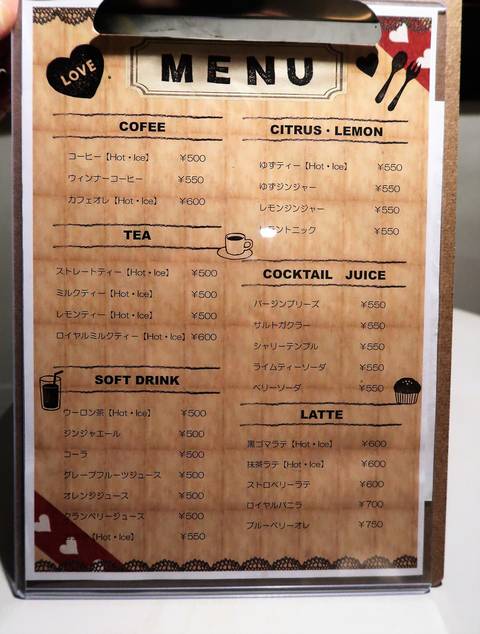 LOVE
MENU
COFEE
コーヒー【Hot・Ice】 ¥500
ウィンナーコーヒー ¥550
カフェオレ【Hot・Ice】 ¥600
TEA
ストレートティー【Hot・Ice】 ¥500
ミルクティー【Hot・Ice】 ¥500
レモンティー【Hot・Ice】 ¥500
ロイヤルミルクティー【Hot・Ice】 ¥600
SOFT DRINK
ウーロン茶【Hot・Ice】 ¥500
ジンジャエール ¥500
コーラ ¥500
グレープフルーツジュース ¥500
オレンジジュース ¥500
クランベリージュース ¥500
【Hot・Ice】 ¥550
CITRUS・LEMON
ゆずティー【Hot・Ice】 ¥550
ゆずジンジャー ¥550
レモンジンジャー ¥550
ントニック ¥550
COCKTAIL JUICE
バージンブリーズ ¥550
サルトガクラー ¥550
シャリーテンプル ¥550
ライムティーソーダ ¥550
ベリーソーダ ¥550
LATTE
黒ゴマラテ【Hot・Ice】 ¥600
抹茶ラテ【Hot・Ice】 ¥600
ストロベリーラテ ¥600
ロイヤルバニラ ¥700
ブルーベリーオレ ¥750